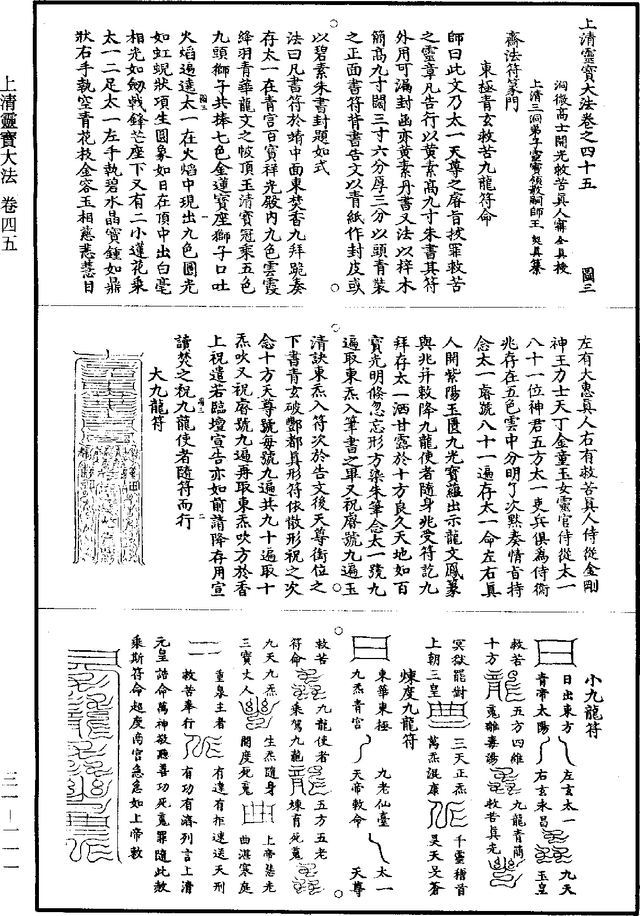 上清靈寶大法 卷四五
三一－一一
上清靈寶大法卷之四十五 圖三
洞微高士開光救苦真人甯全真授
上清三洞弟子靈寶領教嗣師王契真纂
齋法符篆門
東極青玄救苦九龍符命
師曰此文乃太一天尊之睿旨拔罪救苦
之靈章凡告行以黃素高九寸朱書其符
外用可漏封函亦黃素丹書又法以梓木
簡高九寸闊三寸六分厚三分以頭青裝
之正面書符背書告文以青紙作封皮或
以碧素朱書封題如式
法曰凡書符於靖中面東焚香九拜跪奏
存太一在青宮百寶祥光殿內九色雲霞
絳羽青華龍文之帔頂玉清寶冠乘五色
九頭獅子共捧七色金蓮寶座獅子口吐
火焰遶達太一在火焰中現出九色圓光
如虹蜺狀項生圓象如日在頂中出白毫
相光如劒戟鋒芒座下又有二小蓮花乘
太一二足太一左手執碧水晶寶鍾如鼎
狀右手執空青花枝金容玉相慈悲慧目
左有大惠真人右有救苦真人侍從金剛
神王力士天丁金童玉女靈官侍從太一
八十一位神君五方太一吏兵俱為侍衛
兆存在五色雲中分明了次默奏情旨持
念太一睿號八十一遍存太一命左右真
人開紫陽玉匱九光寶蘊出示龍文鳳篆
與兆并敕降九龍使者隨身兆受符訖九
拜存太一洒甘露於十方良久天地如百
寶光明倏忽忘形方染朱筆念太一號九
遍取東炁入筆書之畢又祝睿號九遍玉
清訣東炁入符次於告文後天尊銜位之
下書青玄破酆都真形符依散形祝之次
念十方天尊號每號九遍共九十遍取十
炁吹又祝睿號九遍再取東炁吹方於香
上祝遣若臨壇宣告亦如前請降存用宣
讀焚之祝九龍使者隨符而行
大九龍符
小九龍符
日出東方
左玄太一
九天
青帝太陽
右玄永昌
玉皇
救苦
五方四維
九龍青簡
十方
冤讎毒湯
救苦真光
冥獄罷對
三天正炁
千靈稽首
上朝三皇
萬炁混康
昊天旻蒼
煉度九龍符
東華東極
九老仙臺
太一
九炁青宮
天帝敕命
天尊
救苦
九龍使者
五方五老
符命
乘駕九龍
煉育死冤
九天九炁
生炁隨身
上帝慧光
三寶丈人
開度死冤
曲湛寒庭
重泉主者
有違有拒速送天刑
救苦奉行
有功有濟列言上清
元皇誥命萬神敬聽善功死冤罪隨此敕
乘斯符命超度南宮急急如上帝敕